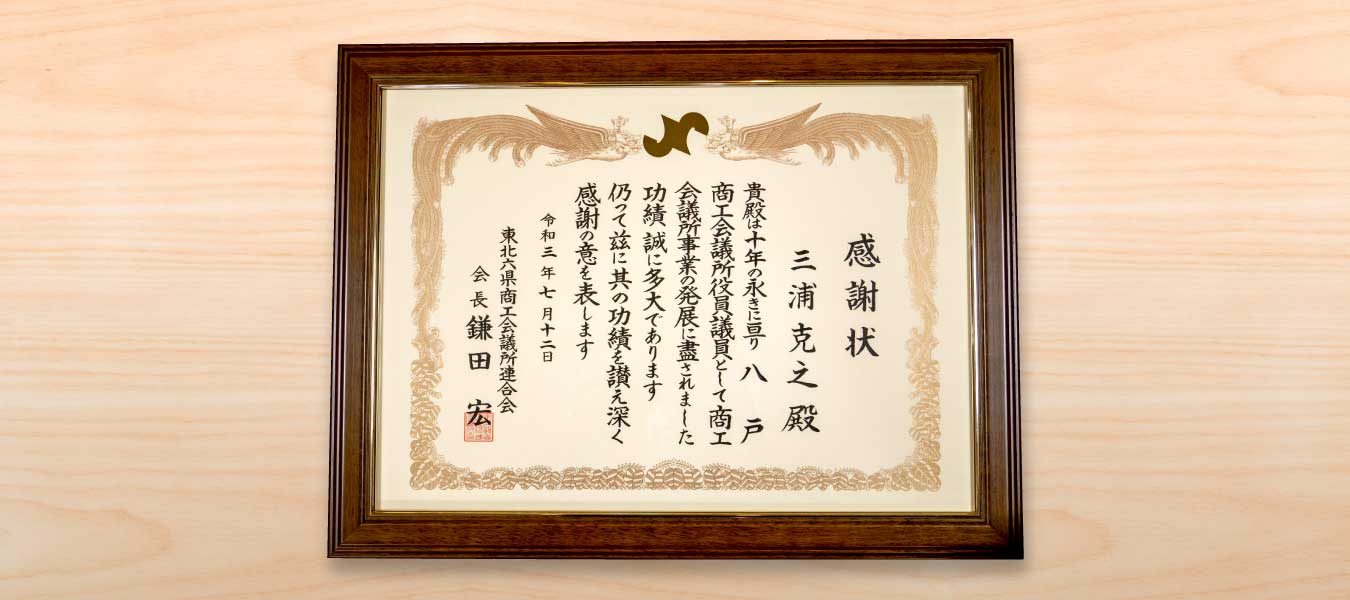 感謝状
三浦克之殿
貴殿は十年の永きに亘り八戸
商工会議所役員議員として商工
会議所事業の発展に盡されました
功績誠に多大であります
仍って玆に其の功績を讃え深く
感謝の意を表します
令和三年七月十二日
東北六県商工会議所連合会
会長鎌田宏